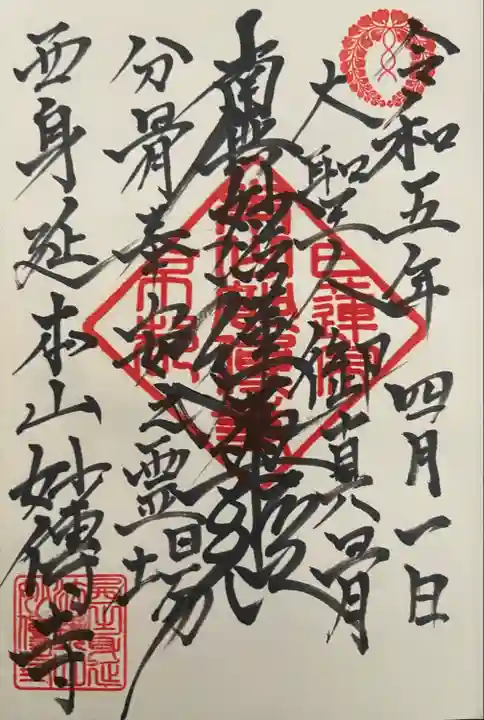 令和五年四月一日
大聖人御真骨
南無妙法蓮華経
分骨奉安之霊場
西身延本山妙傳寺